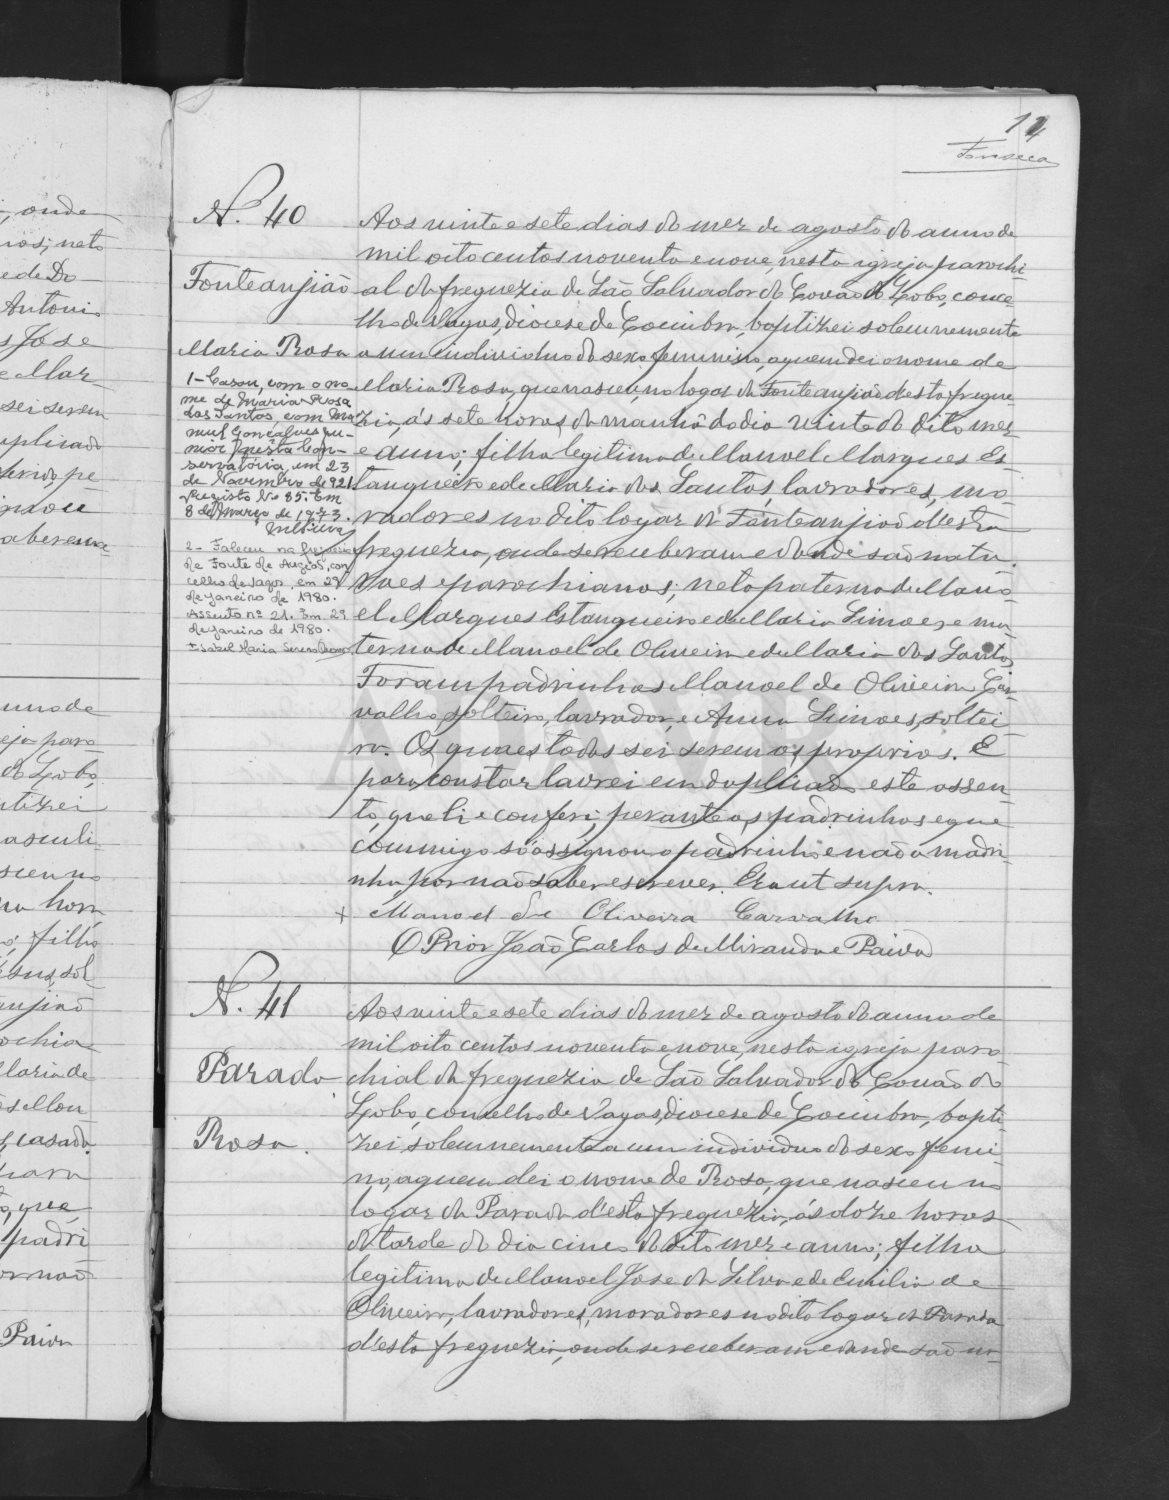 14
Fonseca
N. 40
Fonteanjião
Maria Rosa
1 - Casou, com o no-
me de Maria Rosa
dos Santos, com Ma-
nuel Gonçalves Ju-
nior nesta Con-
servatória, em 23
de Novembro de 921
Registo No 85. Em
8 de Março de 1973.
2 - Faleceu na freguesia
de Fonte de Angeão, con-
celho de Vagos em 29
de Janeiro de 1980.
Assento nº 21. Em 29
de Janeiro de 1980.
Isabel Maria
Aos vinte e sete dias do mez de agosto do anno de
mil oito centos noventa e nove, nesta igreja parochi-
al da freguezia de São Salvador do Covão do Lobo, conce-
lho de Vagos, diocese de Coimbra, baptizei solemnemente
a um individuo do sexo feminino, a quem dei o nome de
Maria Rosa, que nasceu no logar da Fonteanjião d'esta fregue-
zia, ás sete horas da manhã do dia vinte do dito mez
e anno; filha legitima de Manoel Marques Es-
tanqueiro e de Maria dos Santos, lavradores, mo
radores no dito logar da Fonteanjião d'esta
freguezia, onde se receberam e donde são natu-
raes e parochianos; neta paterna de Mano-
el Marques Estanqueiro e de Maria Simoes, e ma-
terna de Manoel de Oliveira e de Maria dos Santos.
Foram padrinhos Manoel de Oliveira Car-
valho, solteiro, lavrador, e Anna Simoes, soltei-
ra. Os quaes todos sei serem os proprios. E
para constar lavrei em duplicado este assen-
to, que li e conferi, perante os padrinhos e que
commigo só assignou o padrinho e não a madri-
nha por não saber escrever. Era ut supra.
+ Manoel de Oliveira Carvalho
O Prior João Carlos de Miranda e Paiva
N. 41
Parada
Rosa.
Aos vinte e sete dias do mez de agosto do anno de
mil oito centos noventa e nove, nesta igreja paro-
chial da freguezia de São Salvador do Covão do
Lobo, concelho de Vagos, diocese de Coimbra, bapti-
zei solemnemente a um individuo do sexo femi-
no, a quem dei o nome de Rosa, que nasceu no
logar da Parada d'esta freguezia, ás doze horas
da tarde do dia cinco do dito mez e anno; filha
legitima de Manoel Jose da Silva e de Emilia de
Oliveira, lavradores, moradores no dito logar da Parada
d'esta freguezia, onde se receberam e donde são na-